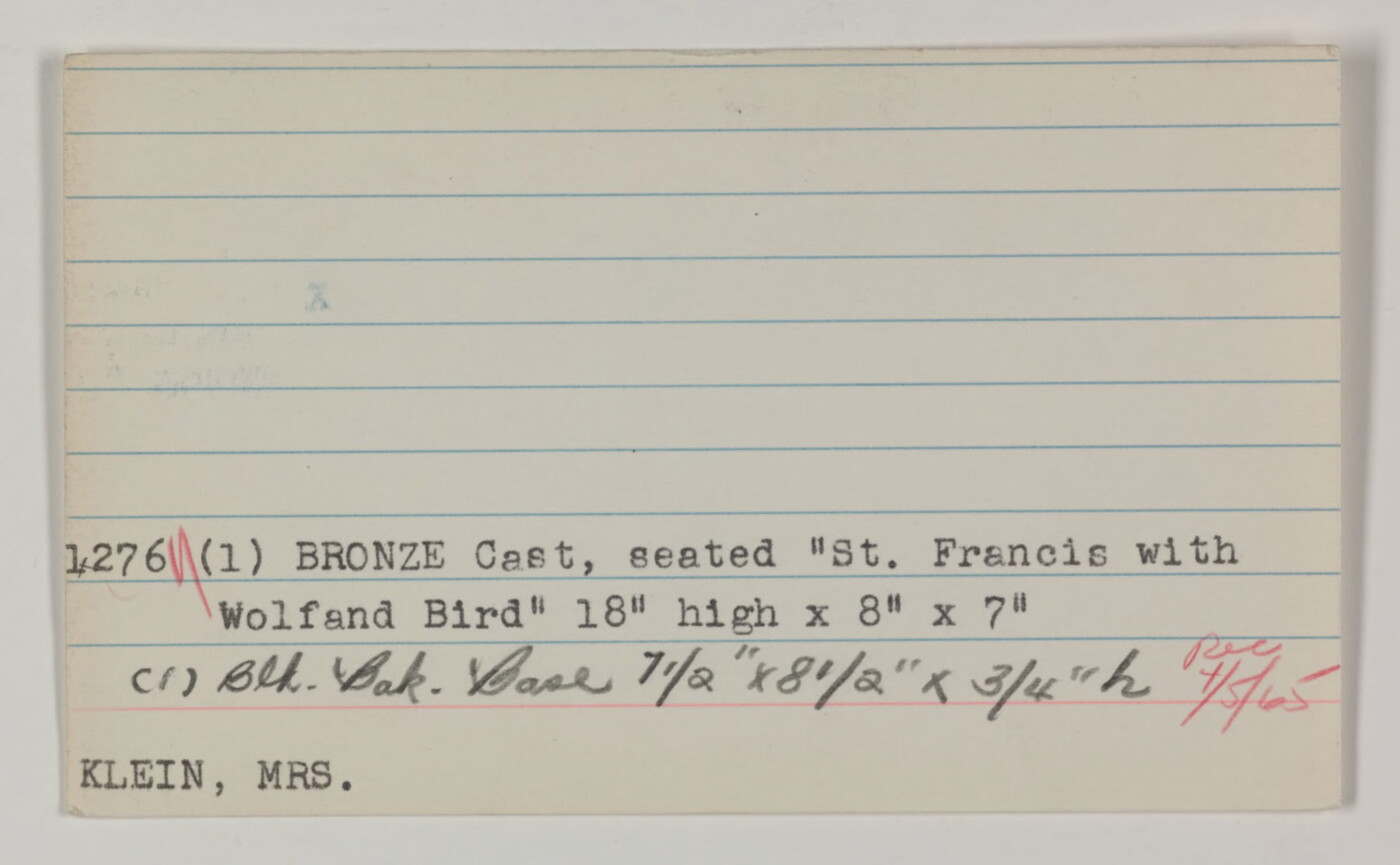 4276 (1) BRONZE Cast, seated "St. Francis with
Wolfand Bird" 18" high x 8" x 7"
(1) Blk. Bak. Base 7 1/2" x 8 1/2" x 3/4" h
Rec
4/5/65
KLEIN, MRS.